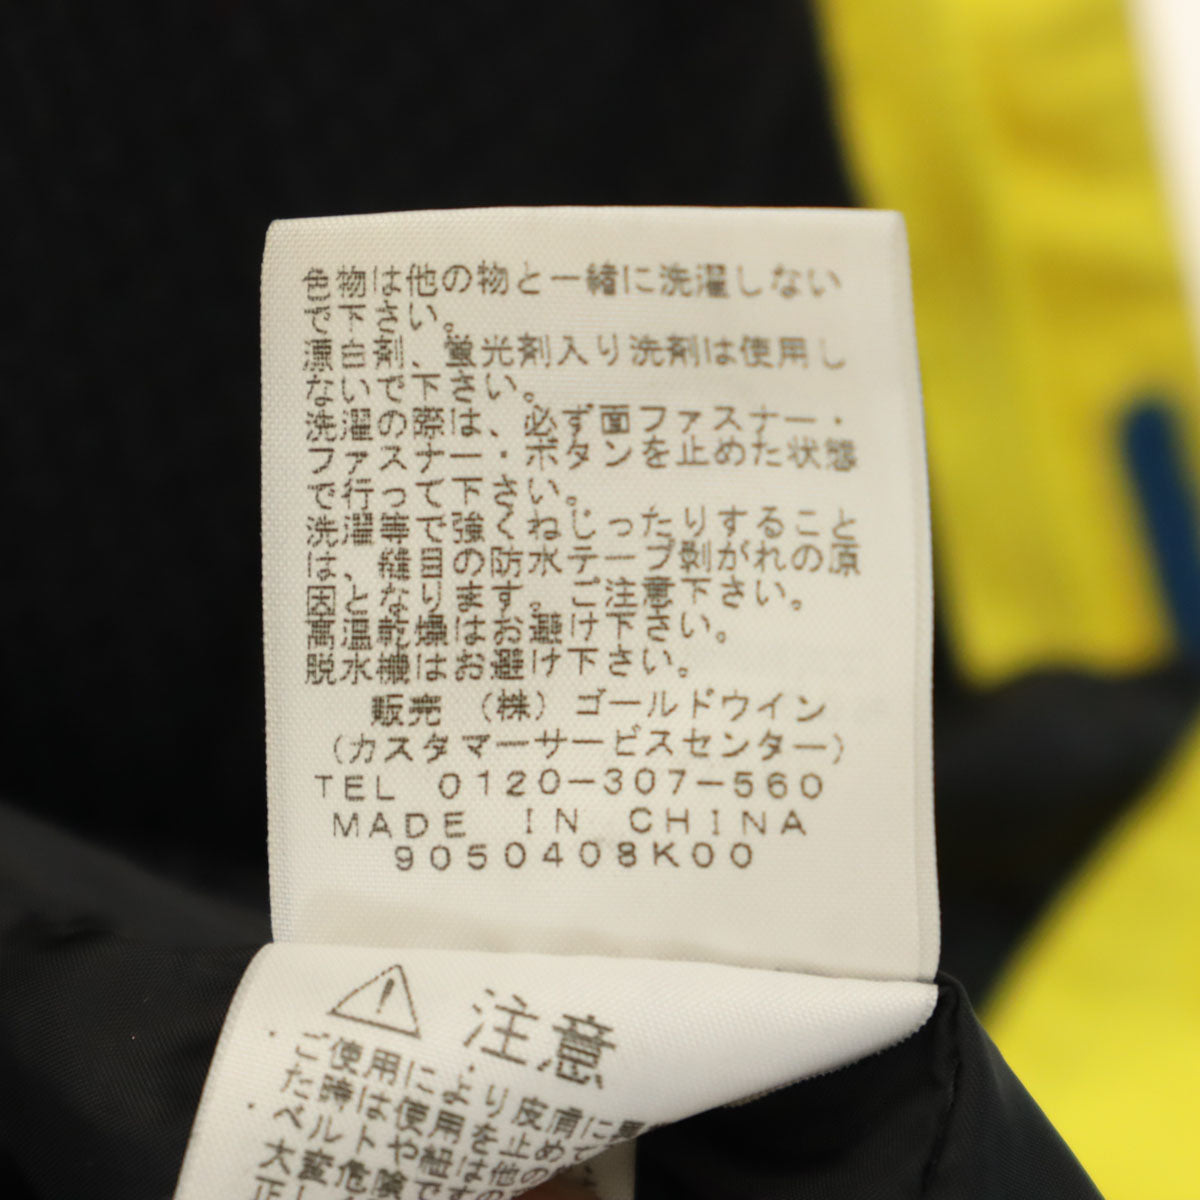 色物は他の物と一緒に洗濯しない
で下さい。
漂白剤、蛍光剤入り洗剤は使用し
ないで下さい。
洗濯の際は、必ず面ファスナー・
ファスナー・ボタンを止めた状態
で行って下さい。
洗濯等で強くねじったりすること
は、縫目の防水テープ剥がれの原
因となります。ご注意下さい。
高温乾燥はお避け下さい。
脱水機はお避け下さい。
販売 (株) ゴールドウイン
(カスタマーサービスセンター)
TEL 0120-307-560
MADE IN CHINA
9050408K00
注意
・ご使用により皮膚に
た時は使用を止め
・ベルトや紐は他の
大変危険です